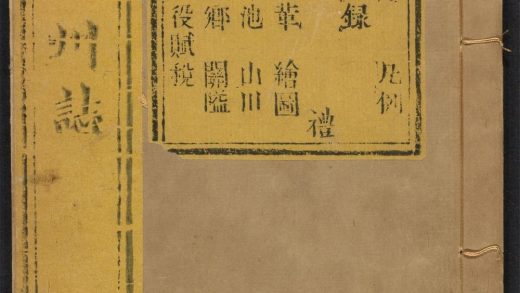 凡例
録
禮
革 繪圖
池 山川
鄉 關隘
役賦稅
州誌